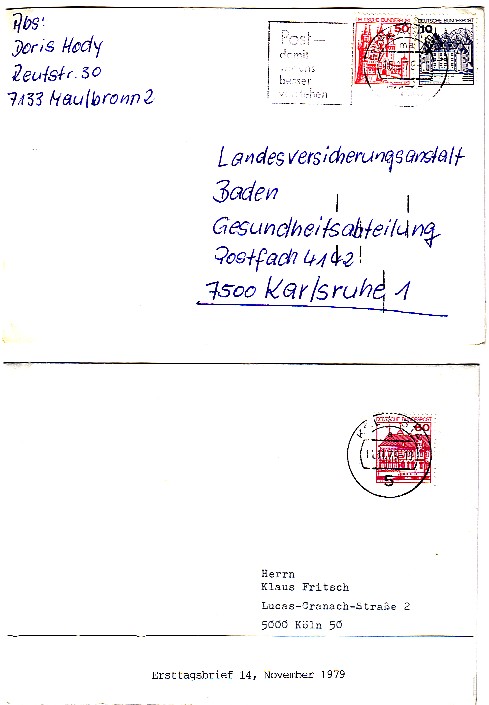 Abs:
Doris Hody
Reutstr. 30
7133 Maulbronn 2
Post—
damit
uns
besser
50
DEUTSCHE BUNDESPOST
10
Landesversicherungsanstalt
Baden
Gesundheitsabteilung
Postfach 4142
7500 Karlsruhe 1
DEUTSCHE BUNDESPOST
60
5
Herrn
Klaus Fritsch
Lucas-Cranach-Straße 2
5000 Köln 50
Ersttagsbrief 14, November 1979